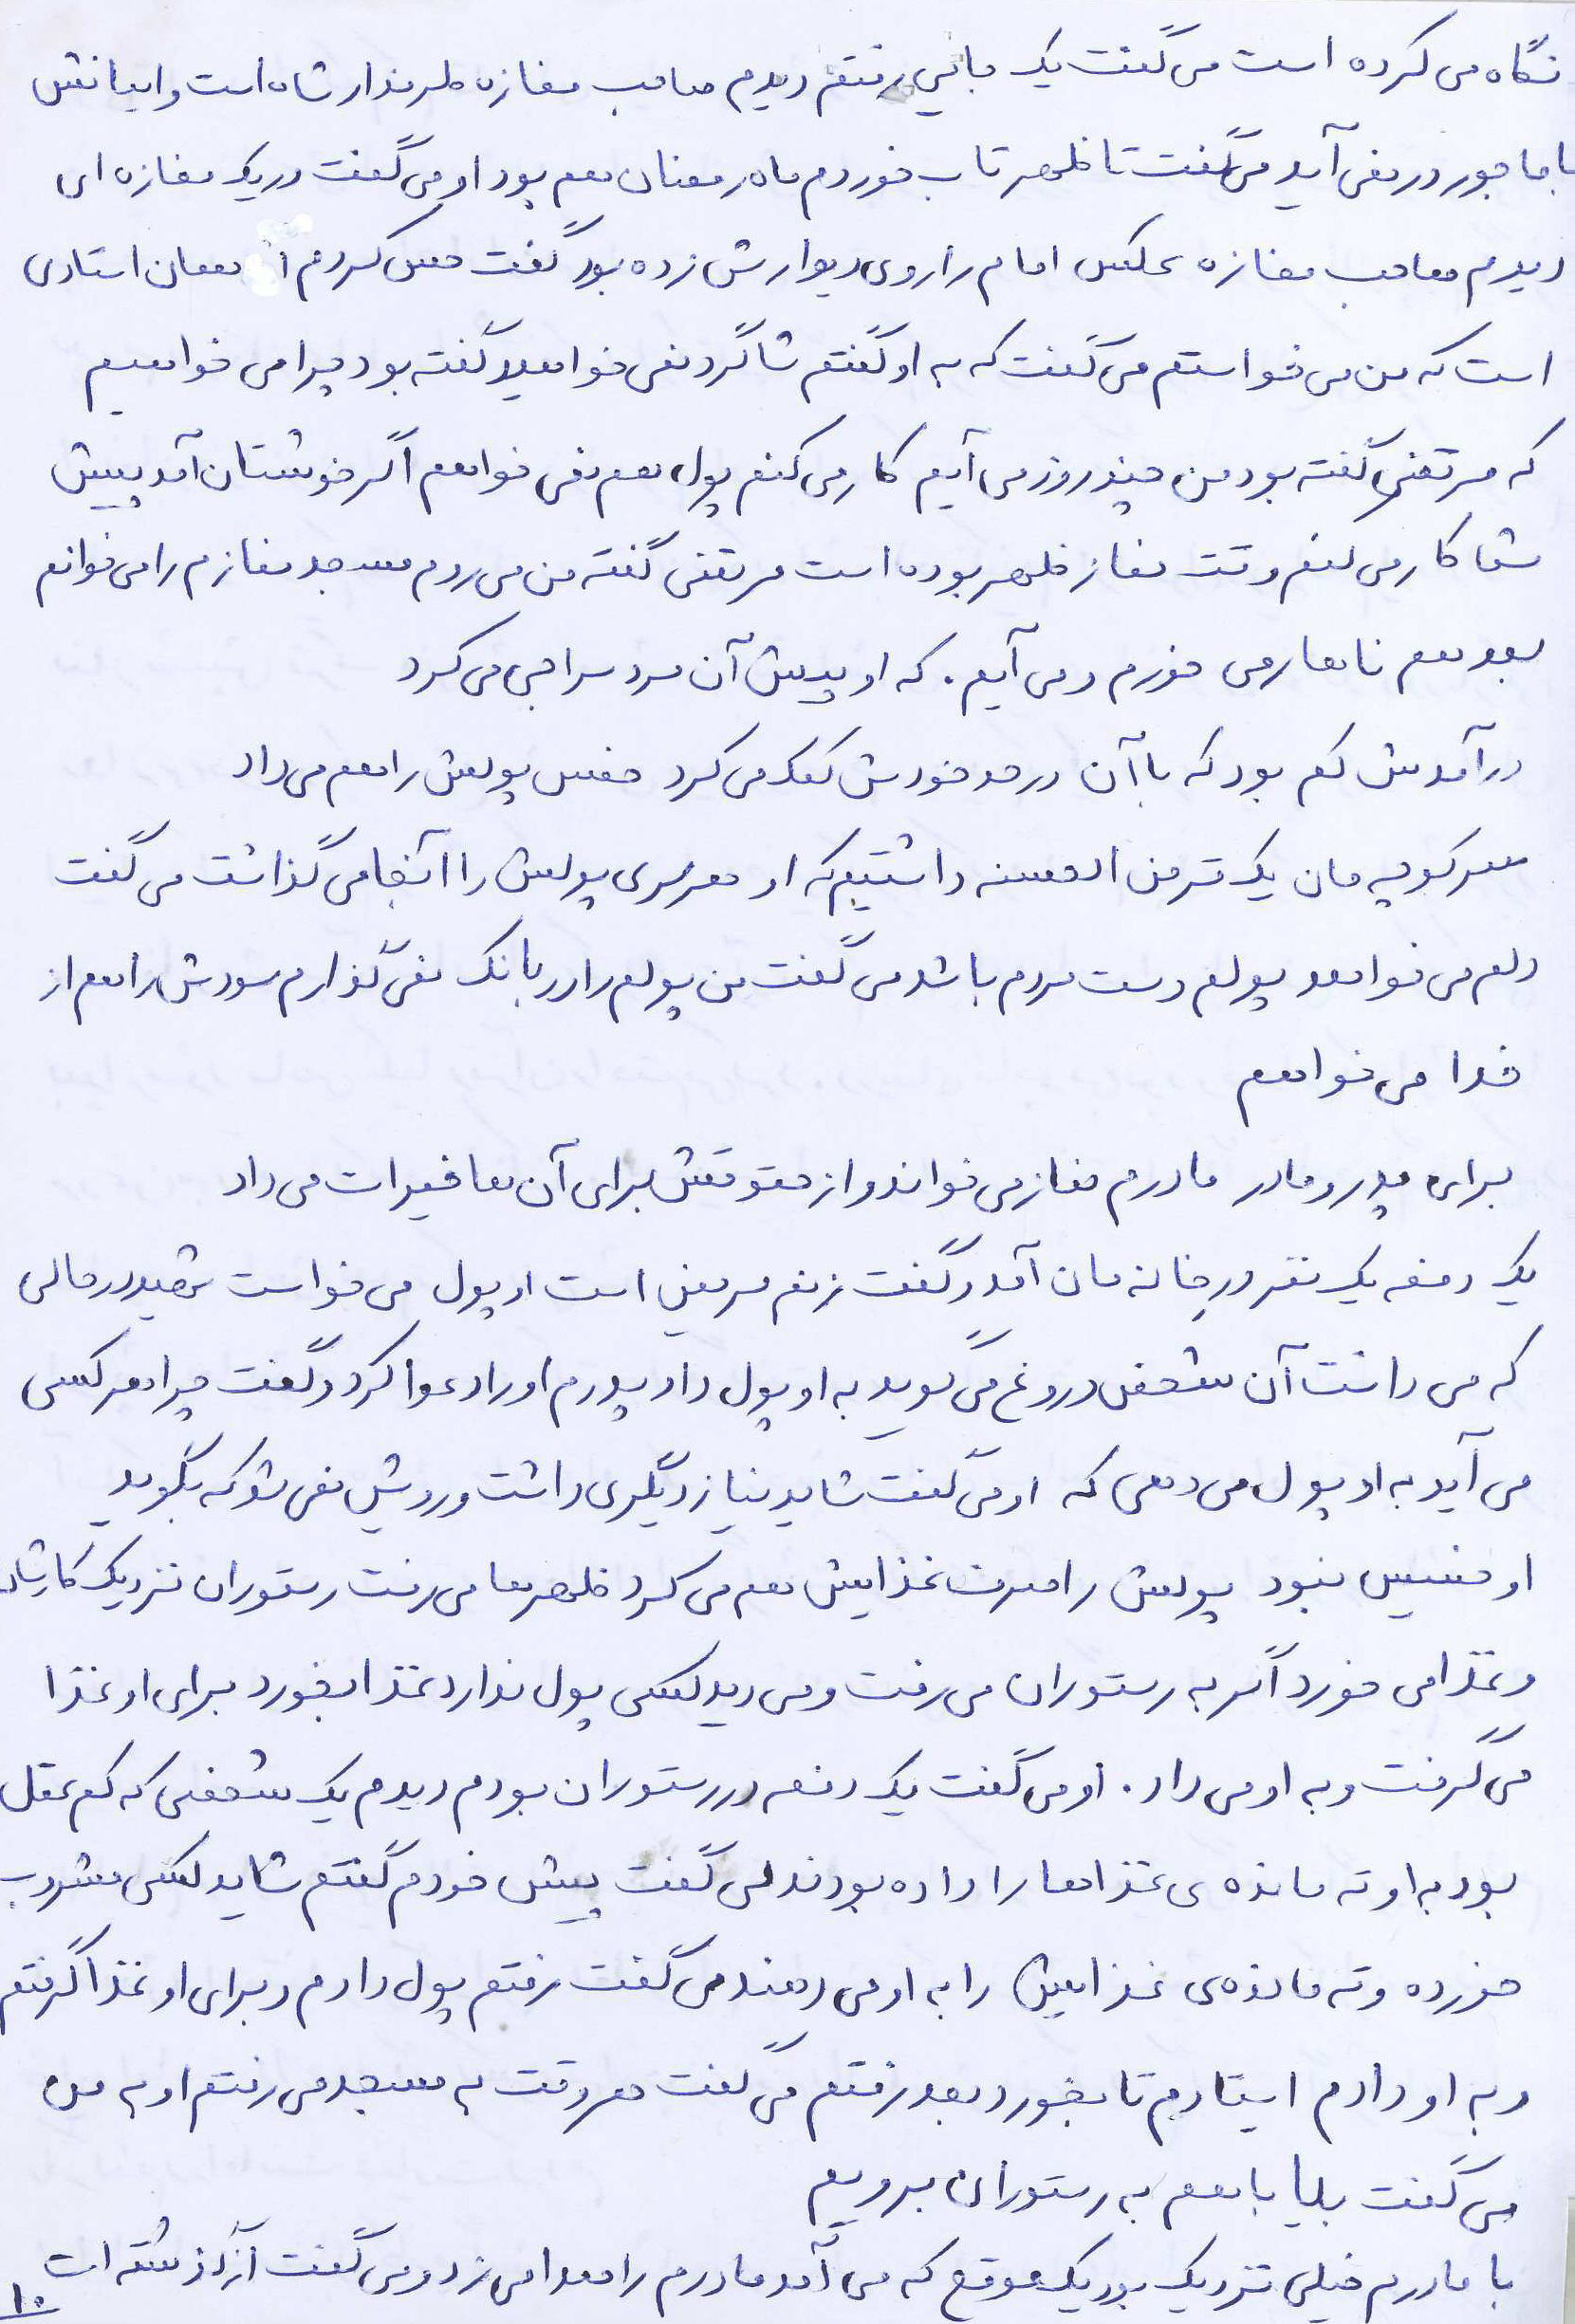 نگاه می کرده است می گفت یک جایی رفتم دیدم صاحب مغازه طرفدار شاه است و ایمانش
با ما جور در نمی آید می گفت تا ظهر تاب خوردم ماه رمضان هم بود او می گفت در یک مغازه ای
دیدم صاحب مغازه عکس امام را روی دیوارش زده بود گفت حس کردم همان استادی
است که من می خواستم می گفت که به او گفتم شاگرد نمی خواهید گفته بود چرا می خواهیم
که مرتضی گفته بود من چند روز می آیم کار می کنم پول هم نمی خواهم اگر خوشتان آمد پیش
شما کار می کنم وقت نماز ظهر بوده است مرتضی گفته من می روم مسجد نمازم را می خوانم
بعد هم ناهار می خورم و می آیم. که او پیش آن مرد سراجی می کرد
درآمدش کم بود که با آن در حد خودش کمک می کرد خمس پولش را هم می داد
سر کوچه مان یک قرض الحسنه داشتیم که او هر سری پولش را آنجا می گذاشت می گفت
دلم می خواهد پولم دست مردم باشد می گفت من پولم را در بانک نمی گذارم سودش را هم از
خدا می خواهم
برای پدر و مادر مادرم نماز می خواند و از حقوقش برای آن ها خیرات می داد
یک دفعه یک نفر در خانه مان آمد و گفت زنم مریض است او پول می خواست شهید در حالی
که می دانست آن شخص دروغ می گوید به او پول داد پدرم او را دعوا کرد و گفت چرا هر کسی
می آید به او پول می دهی که او می گفت شاید نیاز دیگری داشت و رویش نمی شد که بگوید
او خسیس نبود پولش را صرف غذایش هم می کرد ظهرها می رفت رستوران نزدیک کارشان
و غذا می خورد اگر به رستوران می رفت و می دید کسی پول ندارد غذا بخورد برای او غذا
می گرفت و به او می داد. او می گفت یک دفعه در رستوران بودم دیدم یک شخصی که کم عقل
بود به او ته مانده ی غذاها را داده بودند می گفت پیش خودم گفتم شاید کسی مشروب
خورده و ته مانده ی غذایش را به او می دهند می گفت رفتم پول دادم و برای او غذا گرفتم
و به او دادم ایستادم تا بخورد بعد رفتم می گفت هر وقت به مسجد می رفتم او به من
می گفت بیا با هم به رستوران برویم
با مادرم خیلی نزدیک بود یک موقع که می آمد مادرم را صدا می زد و می گفت
۱۰